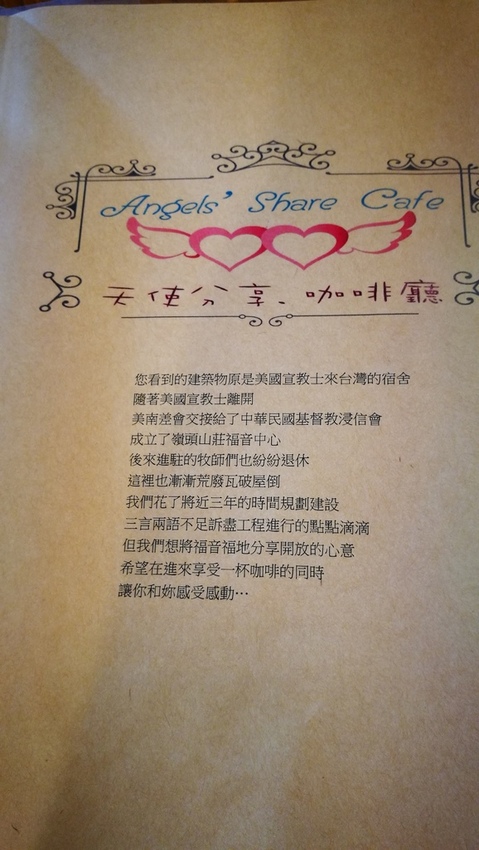 Angels' Share Cafe
天使分享、咖啡廳
您看到的建築物原是美國宣教士來台灣的宿舍
隨著美國宣教士離開
美南差會交接給了中華民國基督教浸信會
成立了嶺頭山莊福音中心
後來進駐的牧師們也紛紛退休
這裡也漸漸荒廢瓦破屋倒
我們花了將近三年的時間規劃建設
三言兩語不足訴盡工程進行的點點滴滴
但我們想將福音福地分享開放的心意
希望在進來享受一杯咖啡的同時
讓你和妳感受感動…